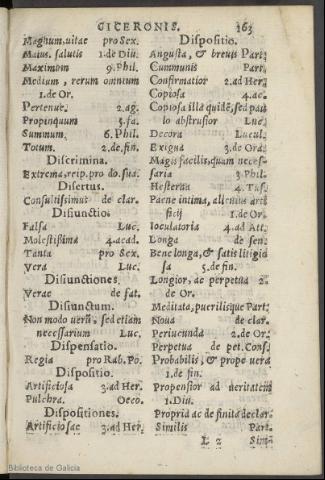 CICERONIS. 163
Magnum, vitae pro Sex.
Maius. salutis 1. de Diu.
Maximum 9. Phil.
Medium, rerum omnium
1. de Or.
Pertenue. 2. ag.
Propinquum 5. fa.
Summum. 6. Phil.
Totum. 2. de. fin.
Discrimina.
Extrema, reip. pro do. sua.
Disertus.
Consultissimus de clar.
Disiunctio.
Falsa Luc.
Molestissima 4. acad.
Tanta pro Sex.
Vera Luc.
Disiunctiones.
Verae de fat.
Disiunctum.
Non modo uerũ, sed etiam
necessarium Luc.
Dispensatio.
Regia pro Rab. Po.
Dispositio.
Artificiosa 3. ad Her.
Pulchra. Oeco.
Dispositiones.
Artificiosae 3. ad Her.
Dispositio.
Angusta, & breuis Part.
Communis Part.
Confirmatior 2. ad Her.
Copiosa 4. ac.
Copiosa illa quidẽ, sed paulo
lo abstrusior Luc.
Decora Lucul.
Exigna 3. de Ora.
Magis facilis, quam necessaria
saria 3. Phil.
Hesterna 4. Tus.
Paene intima, alienins arti
ficij 1. de Or.
Ioculatoria 4. ad Att.
Longa de sen.
Bene longa, & satis litigio
sa 5. de fin.
Longior, ac perpetua 2.
de Or.
Meditata, puerilisque Part.
Noua de clar.
Periucunda 2. de Or.
Perpetua de pet. Cons.
Probabilis, & prope uera
1. de fin.
Propensior ad ueritatem
1. Diu.
Propria ac de finita declar.
Similis Part.
L 2 Sim-
Biblioteca de Galicia